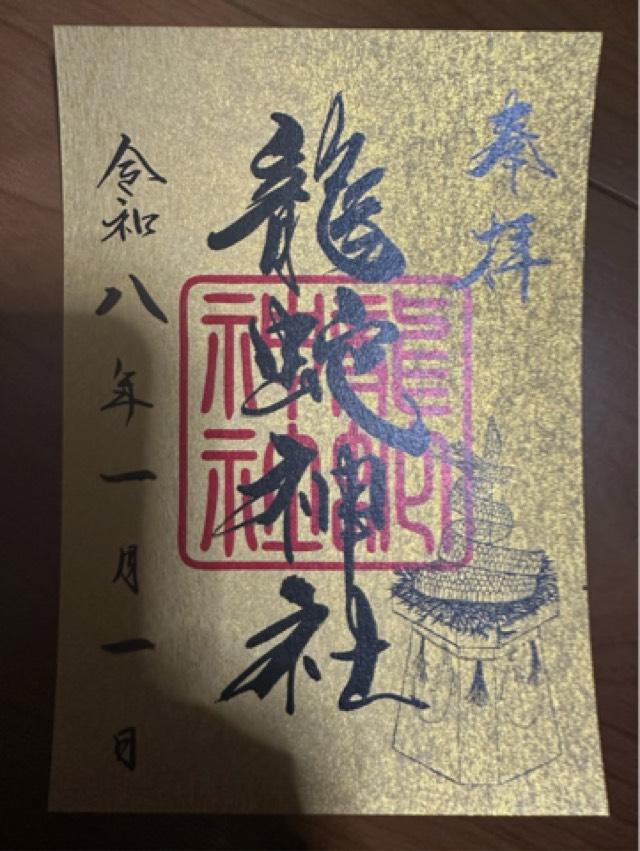 奉拝
龍蛇神社
龍蛇神社
令和八年一月一日